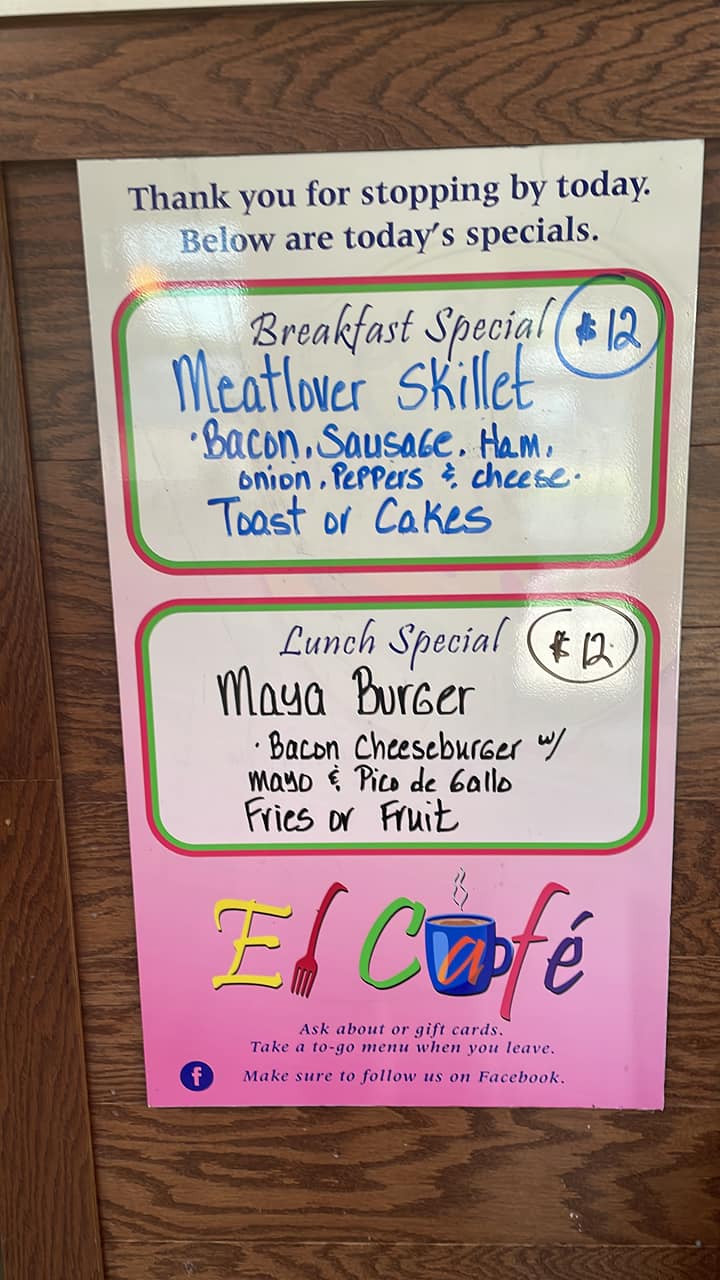 Thank you for stopping by today.
Below are today's specials.
Breakfast Special $12
Meatlover Skillet
·Bacon, Sausage, Ham,
onion, Peppers & cheese.
Toast or Cakes
Lunch Special $12
Maya Burger
·Bacon Cheeseburger w/
mayo & Pico de Gallo
Fries or Fruit
El Café
Ask about or gift cards.
Take a to-go menu when you leave.
f Make sure to follow us on Facebook.